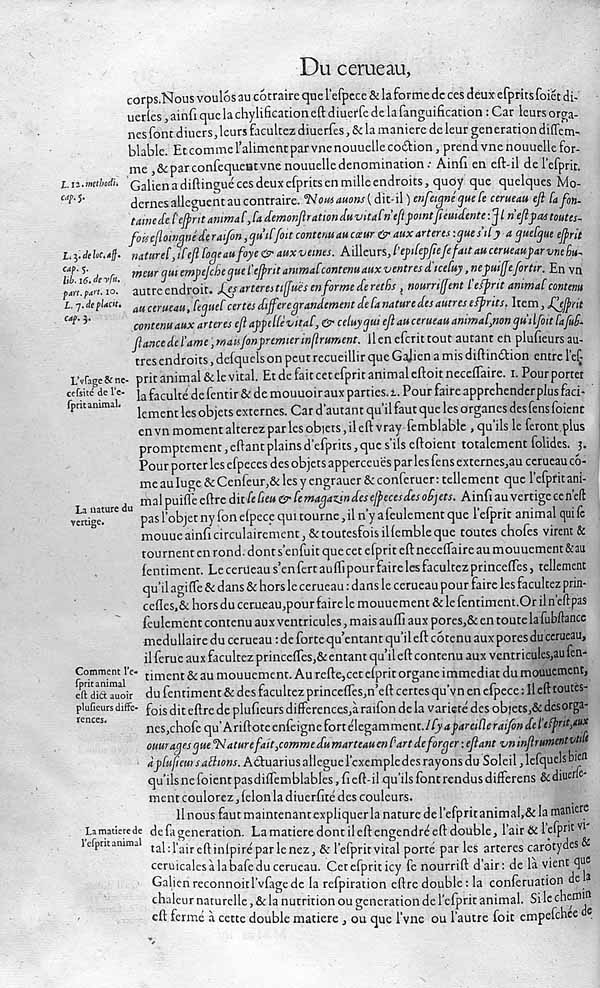 Du cerueau,
corps. Nous voulõs au cõtraire que l'eſpece & la forme de ces deux eſprits ſoiẽt di-
uerſes, ainſi que la chylification eſt diuerſe de la ſanguification : Car leurs orga-
nes ſont diuers, leurs facultez diuerſes, & la maniere de leur generation diſſem-
blable. Et comme l'aliment par vne nouuelle coction, prend vne nouuelle for-
me, & par conſequent vne nouuelle denomination : Ainſi en eſt-il de l'eſprit.
L. 12. methodi.
cap. 5.
Galien a diſtingué ces deux eſprits en mille endroits, quoy que quelques Mo-
dernes alleguent au contraire. Nous auons (dit-il) enſeigné que le cerueau eſt la fon-
taine de l'eſprit animal, la demonſtration du vital n'eſt point ſi euidente : Il n'eſt pas toutes-
fois eſloingné de raiſon, qu'il ſoit contenu au cœur & aux arteres : que s'il y a quelque eſprit
L. 3. de loc. aff.
cap. 5.
lib. 16. de vſu.
part. part. 10.
L. 7. de placit.
cap. 3.
naturel, il eſt logé au foye & aux veines. Ailleurs, l'epilepſie ſe fait au cerueau par vne hu-
meur qui empeſche que l'eſprit animal contenu aux ventres d'iceluy, ne puiſſe ſortir. En vn
autre endroit. Les arteres tiſſuës en forme de reths, nourriſſent l'eſprit animal contenu
au cerueau, lequel certes differe grandement de la nature des autres eſprits. Item, L'eſprit
contenu aux arteres eſt appellé vital, & celuy qui eſt au cerueau animal, non qu'il ſoit la ſub-
ſtance de l'ame, mais ſon premier inſtrument. Il en eſcrit tout autant en pluſieurs au-
tres endroits, deſquels on peut recueillir que Galien a mis diſtinction entre l'eſ-
L'vſage & ne-
ceſsité de l'e-
ſprit animal.
prit animal & le vital. Et de fait cet eſprit animal eſtoit neceſſaire. 1. Pour porter
la faculté de ſentir & de mouuoir aux parties. 2. Pour faire apprehender plus faci-
lement les objets externes. Car d'autant qu'il faut que les organes des ſens ſoient
en vn moment alterez par les objets, il eſt vray-ſemblable, qu'ils le ſeront plus
promptement, eſtant plains d'eſprits, que s'ils eſtoient totalement ſolides. 3.
Pour porter les eſpeces des objets apperceuës par les ſens externes, au cerueau cõ-
me au Iuge & Cenſeur, & les y engrauer & conſeruer : tellement que l'eſprit ani-
mal puiſſe eſtre dit le lieu & le magazin des eſpeces des objets. Ainſi au vertige ce n'eſt
La nature du
vertige.
pas l'objet ny ſon eſpece qui tourne, il n'y a ſeulement que l'eſprit animal qui ſe
mouue ainſi circulairement, & toutesfois il ſemble que toutes choſes virent &
tournent en rond. dont s'enſuit que cet eſprit eſt neceſſaire au mouuement & au
ſentiment. Le cerueau s'en ſert auſſi pour faire les facultez princeſſes, tellement
qu'il agiſſe & dans & hors le cerueau : dans le cerueau pour faire les facultez prin-
ceſſes, & hors du cerueau, pour faire le mouuement & le ſentiment. Or il n'eſt pas
ſeulement contenu aux ventricules, mais auſſi aux pores, & en toute la ſubſtance
medullaire du cerueau : de ſorte qu'entant qu'il eſt cõtenu aux pores du cerueau,
il ſerue aux facultez princeſſes, & entant qu'il eſt contenu aux ventricules, au ſen-
Comment l'e-
ſprit animal
eſt dict auoir
pluſieurs diffe-
rences.
timent & au mouuement. Au reſte, cet eſprit organe immediat du mouuement,
du ſentiment & des facultez princeſſes, n'eſt certes qu'vn en eſpece : Il eſt toutes-
fois dit eſtre de pluſieurs differences, à raiſon de la varieté des objets, & des orga-
nes, choſe qu'Ariſtote enſeigne fort élegamment. Il y a pareille raiſon de l'eſprit, aux
ouurages que Nature fait, comme du marteau en l'art de forger : eſtant vn inſtrument vtile
à pluſieurs actions. Actuarius allegue l'exemple des rayons du Soleil, leſquels bien
qu'ils ne ſoient pas diſſemblables, ſi eſt-il qu'ils ſont rendus differens & diuerſe-
ment coulorez, ſelon la diuerſité des couleurs.
Il nous faut maintenant expliquer la nature de l'eſprit animal, & la maniere
La matiere de
l'eſprit animal
de ſa generation. La matiere dont il eſt engendré eſt double, l'air & l'eſprit vi-
tal : l'air eſt inſpiré par le nez, & l'eſprit vital porté par les arteres carotydes &
ceruicales à la baſe du cerueau. Cet eſprit icy ſe nourriſt d'air : de là vient que
Galien reconnoit l'vſage de la reſpiration eſtre double : la conſeruation de la
chaleur naturelle, & la nutrition ou generation de l'eſprit animal. Si le chemin
eſt fermé à cette double matiere, ou que l'vne ou l'autre ſoit empeſchée de